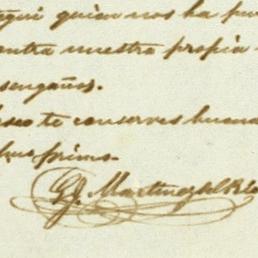 quien nos ha
contra nuestra propia
sengaños.
deseo te conserves buena
primo.
Martinez del Rio